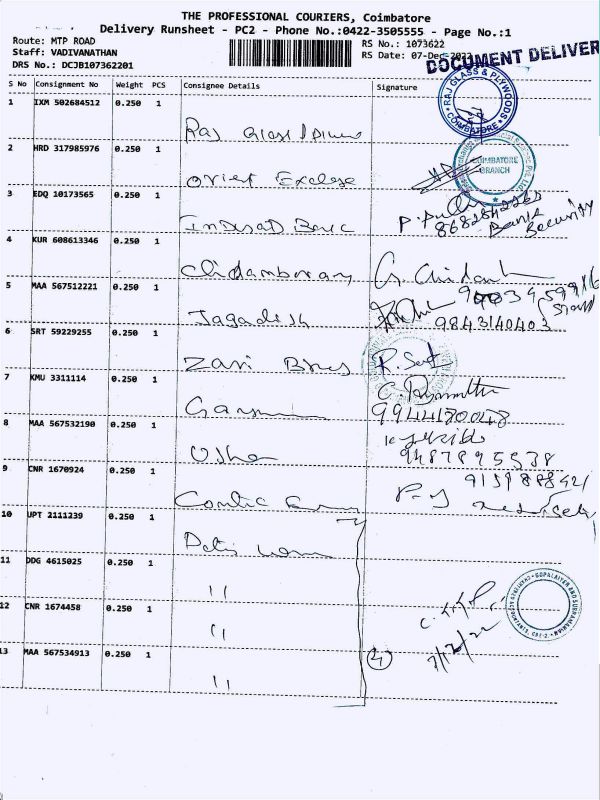 THE PROFESSIONAL COURIERS, Coimbatore
Delivery Runsheet - PC2 - Phone No.:0422-3505555 - Page No.:1
Route: MTP ROAD
RS No.: 1073622
Staff: VADIVANATHAN
RS Date: 07-Dec-2022
DRS No.: DCJB107362201
DOCUMENT DELIVER
S No Consignment No Weight PCS Consignee Details Signature
RAJ GLASS & PLYWOODS
COIMBATORE
1 IXM 502684512 0.250 1
Raj Glass
2 HRD 317985976 0.250 1
COIMBATORE BRANCH
Orient Exclage
3 EDQ 10173565 0.250 1
8682842265
Bank Security
4 KUR 608613346 0.250 1
Chidambaram
5 MAA 567512221 0.250 1
Jagadesh
9843140403
6 SRT 59229255 0.250 1
Zari Bros
7 KMU 3311114 0.250 1
9944180048
8 MAA 567532190 0.250 1
Usha
9487895538
9 CNR 1670924 0.250 1
10 UPT 2111239 0.250 1
11 DDG 4615025 0.250 1
"
GOPALAIYER AND SUBRAMANIAN
CHARTERED ACCOUNTANTS, CBE-2
12 CNR 1674458 0.250 1
"
7/12/22
13 MAA 567534913 0.250 1
4
"